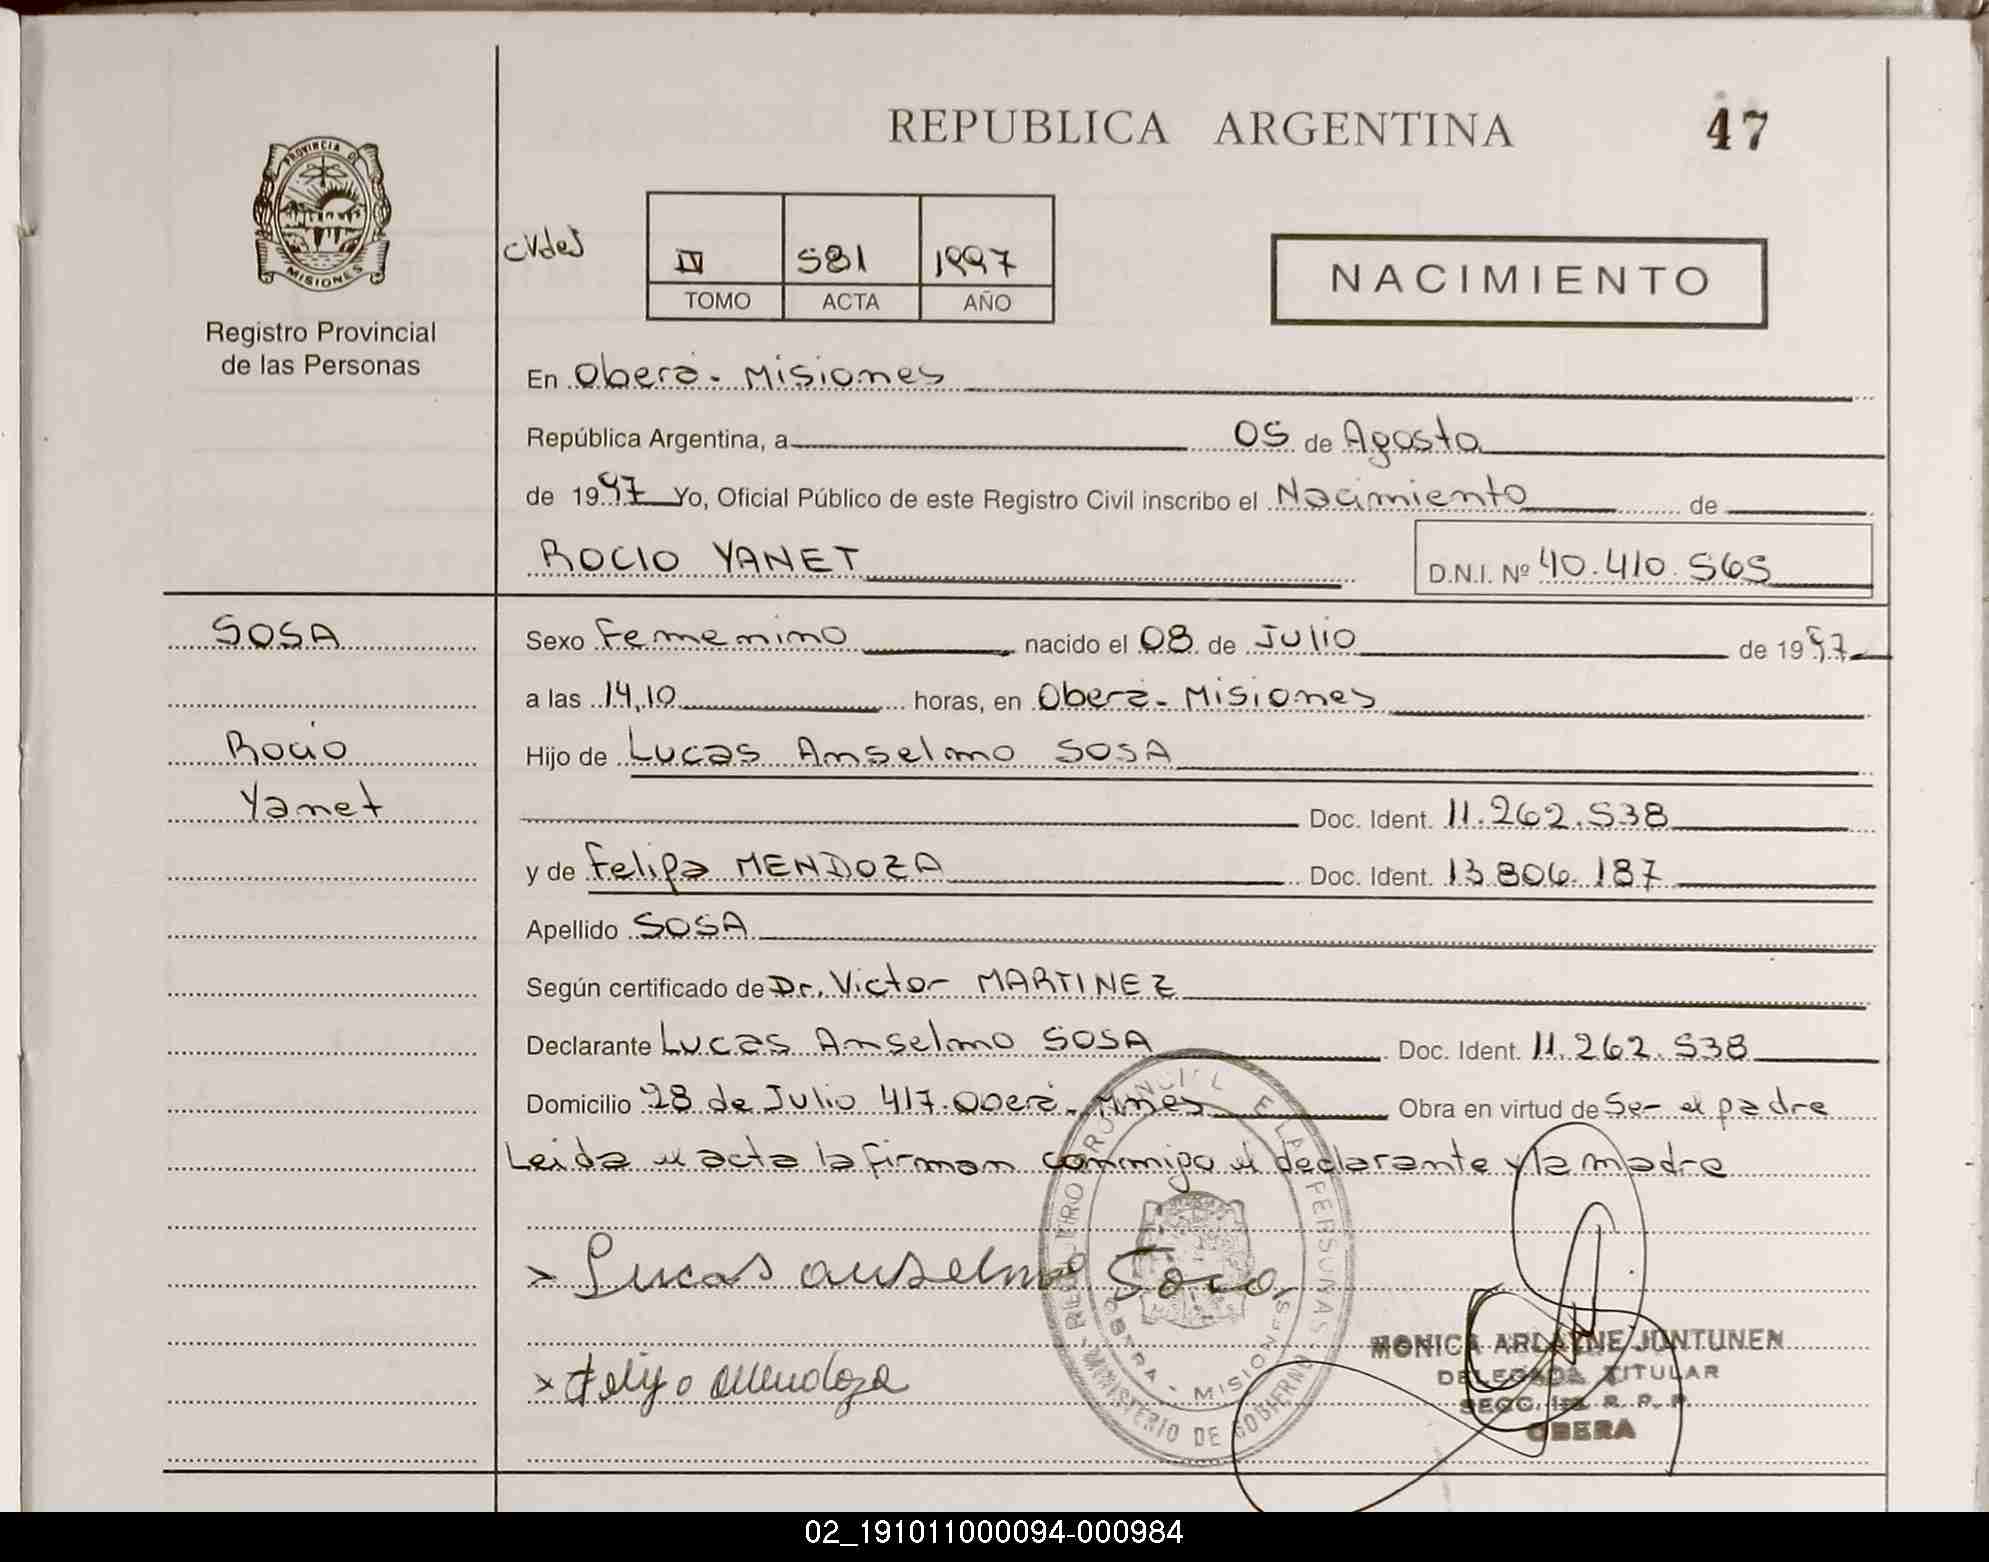 REPUBLICA ARGENTINA
47
PROVINCIA DE
MISIONES
Registro Provincial
de las Personas
IV 581 1997
TOMO ACTA AÑO
NACIMIENTO
En Oberá - Misiones
República Argentina, a 05 de Agosto
de 1997 Yo, Oficial Público de este Registro Civil inscribo el Nacimiento de
ROCIO YANET D.N.I. Nº 40.410.565
SOSA
Rocío
Yanet
Sexo Femenino nacido el 08 de Julio de 1997
a las 14,10 horas, en Oberá - Misiones
Hijo de Lucas Anselmo SOSA
Doc. Ident. 11.262.538
y de Felipa MENDOZA Doc. Ident. 13.806.187
Apellido SOSA
Según certificado de Dr. Victor MARTINEZ
Declarante Lucas Anselmo SOSA Doc. Ident. 11.262.538
Domicilio 28 de Julio 417. Oberá - Mnes Obra en virtud de Ser el padre
Leida el acta la firman conmigo el declarante y la madre
Lucas anselmo Sosa
Felipa Mendoza
MINISTERIO DE GOBIERNO
OBERA - MISIONES
MONICA ARLAYNE JUNTUNEN
DELEGADA TITULAR
SECC. 1ra R. P. P.
OBERA
02_191011000094-000984